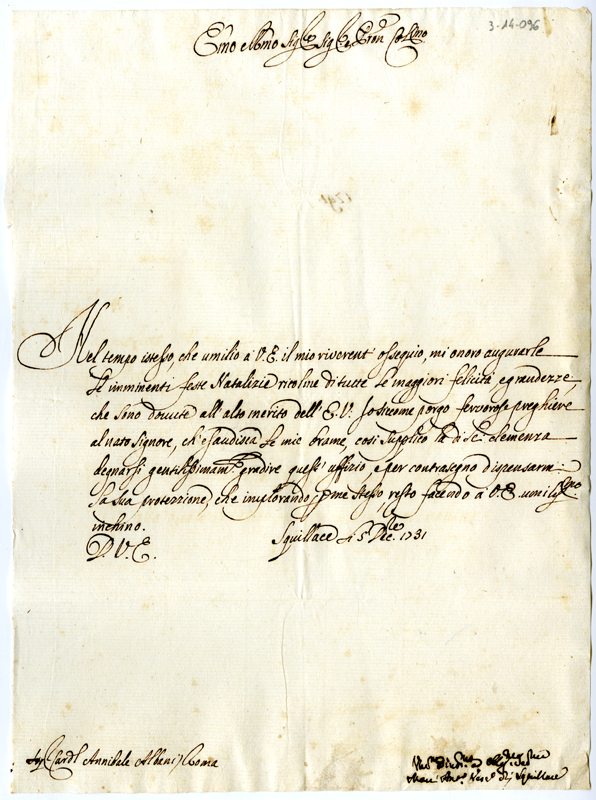 3-14-096
Emo e Rmo Sig.re Sig.re e Pron Colmo
Nel tempo istesso, che umilio à V.E. il mio riverent ossequio, mi onoro augurarle
Le imminenti feste Natalizie ricolme di tutte Le maggiori felicità, e grandezze,
che sono dovute all'alto merito dell'E.V. Io siccome porgo fervorose preghiere
al nato Signore, ch'esaudisca Le mie brame, così supplico la di Lei clemenza
degnarsi gentilissimam.te gradire quest'uffizio, e per contrasegno dispensarmi
la sua protezzione, che implorando, p me stesso resto facendo à V.E. umiliss.mo
inchino.
D.V.E. Squillace li 5 Dec.bre 1731
Sig. Card.l Annibale Albani Roma
Um.o Div.mo ed Obl.mo Ser.
Vesc.o di Squillace